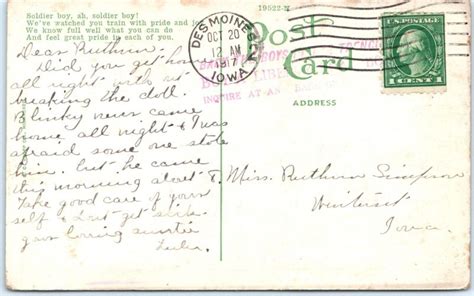 19522-N
Soldier boy, ah, soldier boy!
We've watched you train with pride and joy
We know full well what you can do
And feel great pride in each of you.
Post Card
ADDRESS
DES MOINES
OCT 20
12 AM
1917
IOWA
BOYS
TRENCH
LIBE
INQUIRE AT AN
U.S. POSTAGE
1 CENT 1
Dear Ruthinn.
Did you get home
all right with out
busting the doll.
Blinky never came
home all night & I was
afraid some one stole
him. but he came
this morning about 8
Take good care of your
self & dont get sick
your loving auntie
Miss. Ruthinn Simpson
Winterset
Iowa